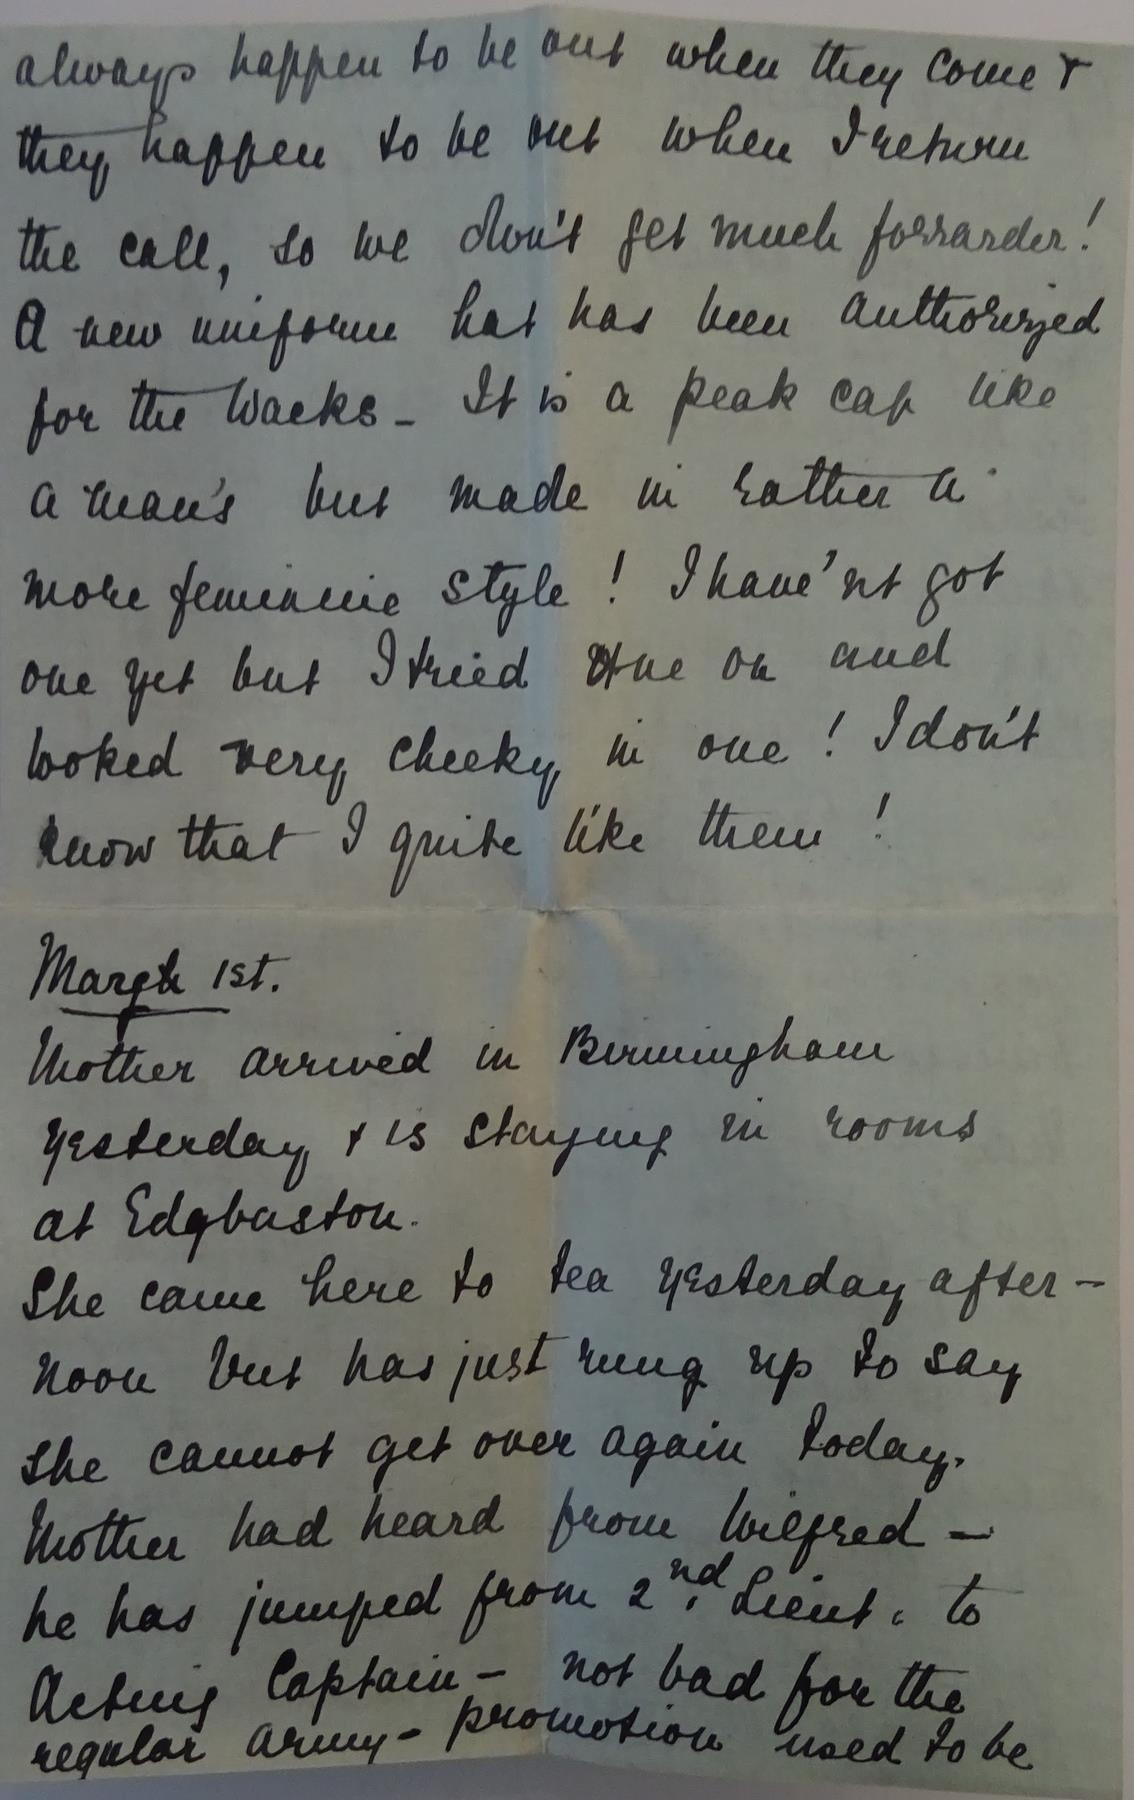 always happen to be out when they come &
they happen to be out when I return
the call, so we don't get much forrarder!
A new uniform hat has been authorized
for the Waaks - It is a peak cap like
a man's but made in rather a
more feminine style! I have'nt got
one yet but I tried one on and
looked very cheeky in one! I don't
know that I quite like them!
March 1st.
Mother arrived in Birmingham
yesterday & is staying in rooms
at Edgbaston.
She came here to tea yesterday after-
noon but has just rung up to say
she cannot get over again today.
Mother had heard from Wilfred -
he has jumped from 2nd. Lieut. to
Acting Captain - not bad for the
regular army - promotion used to be